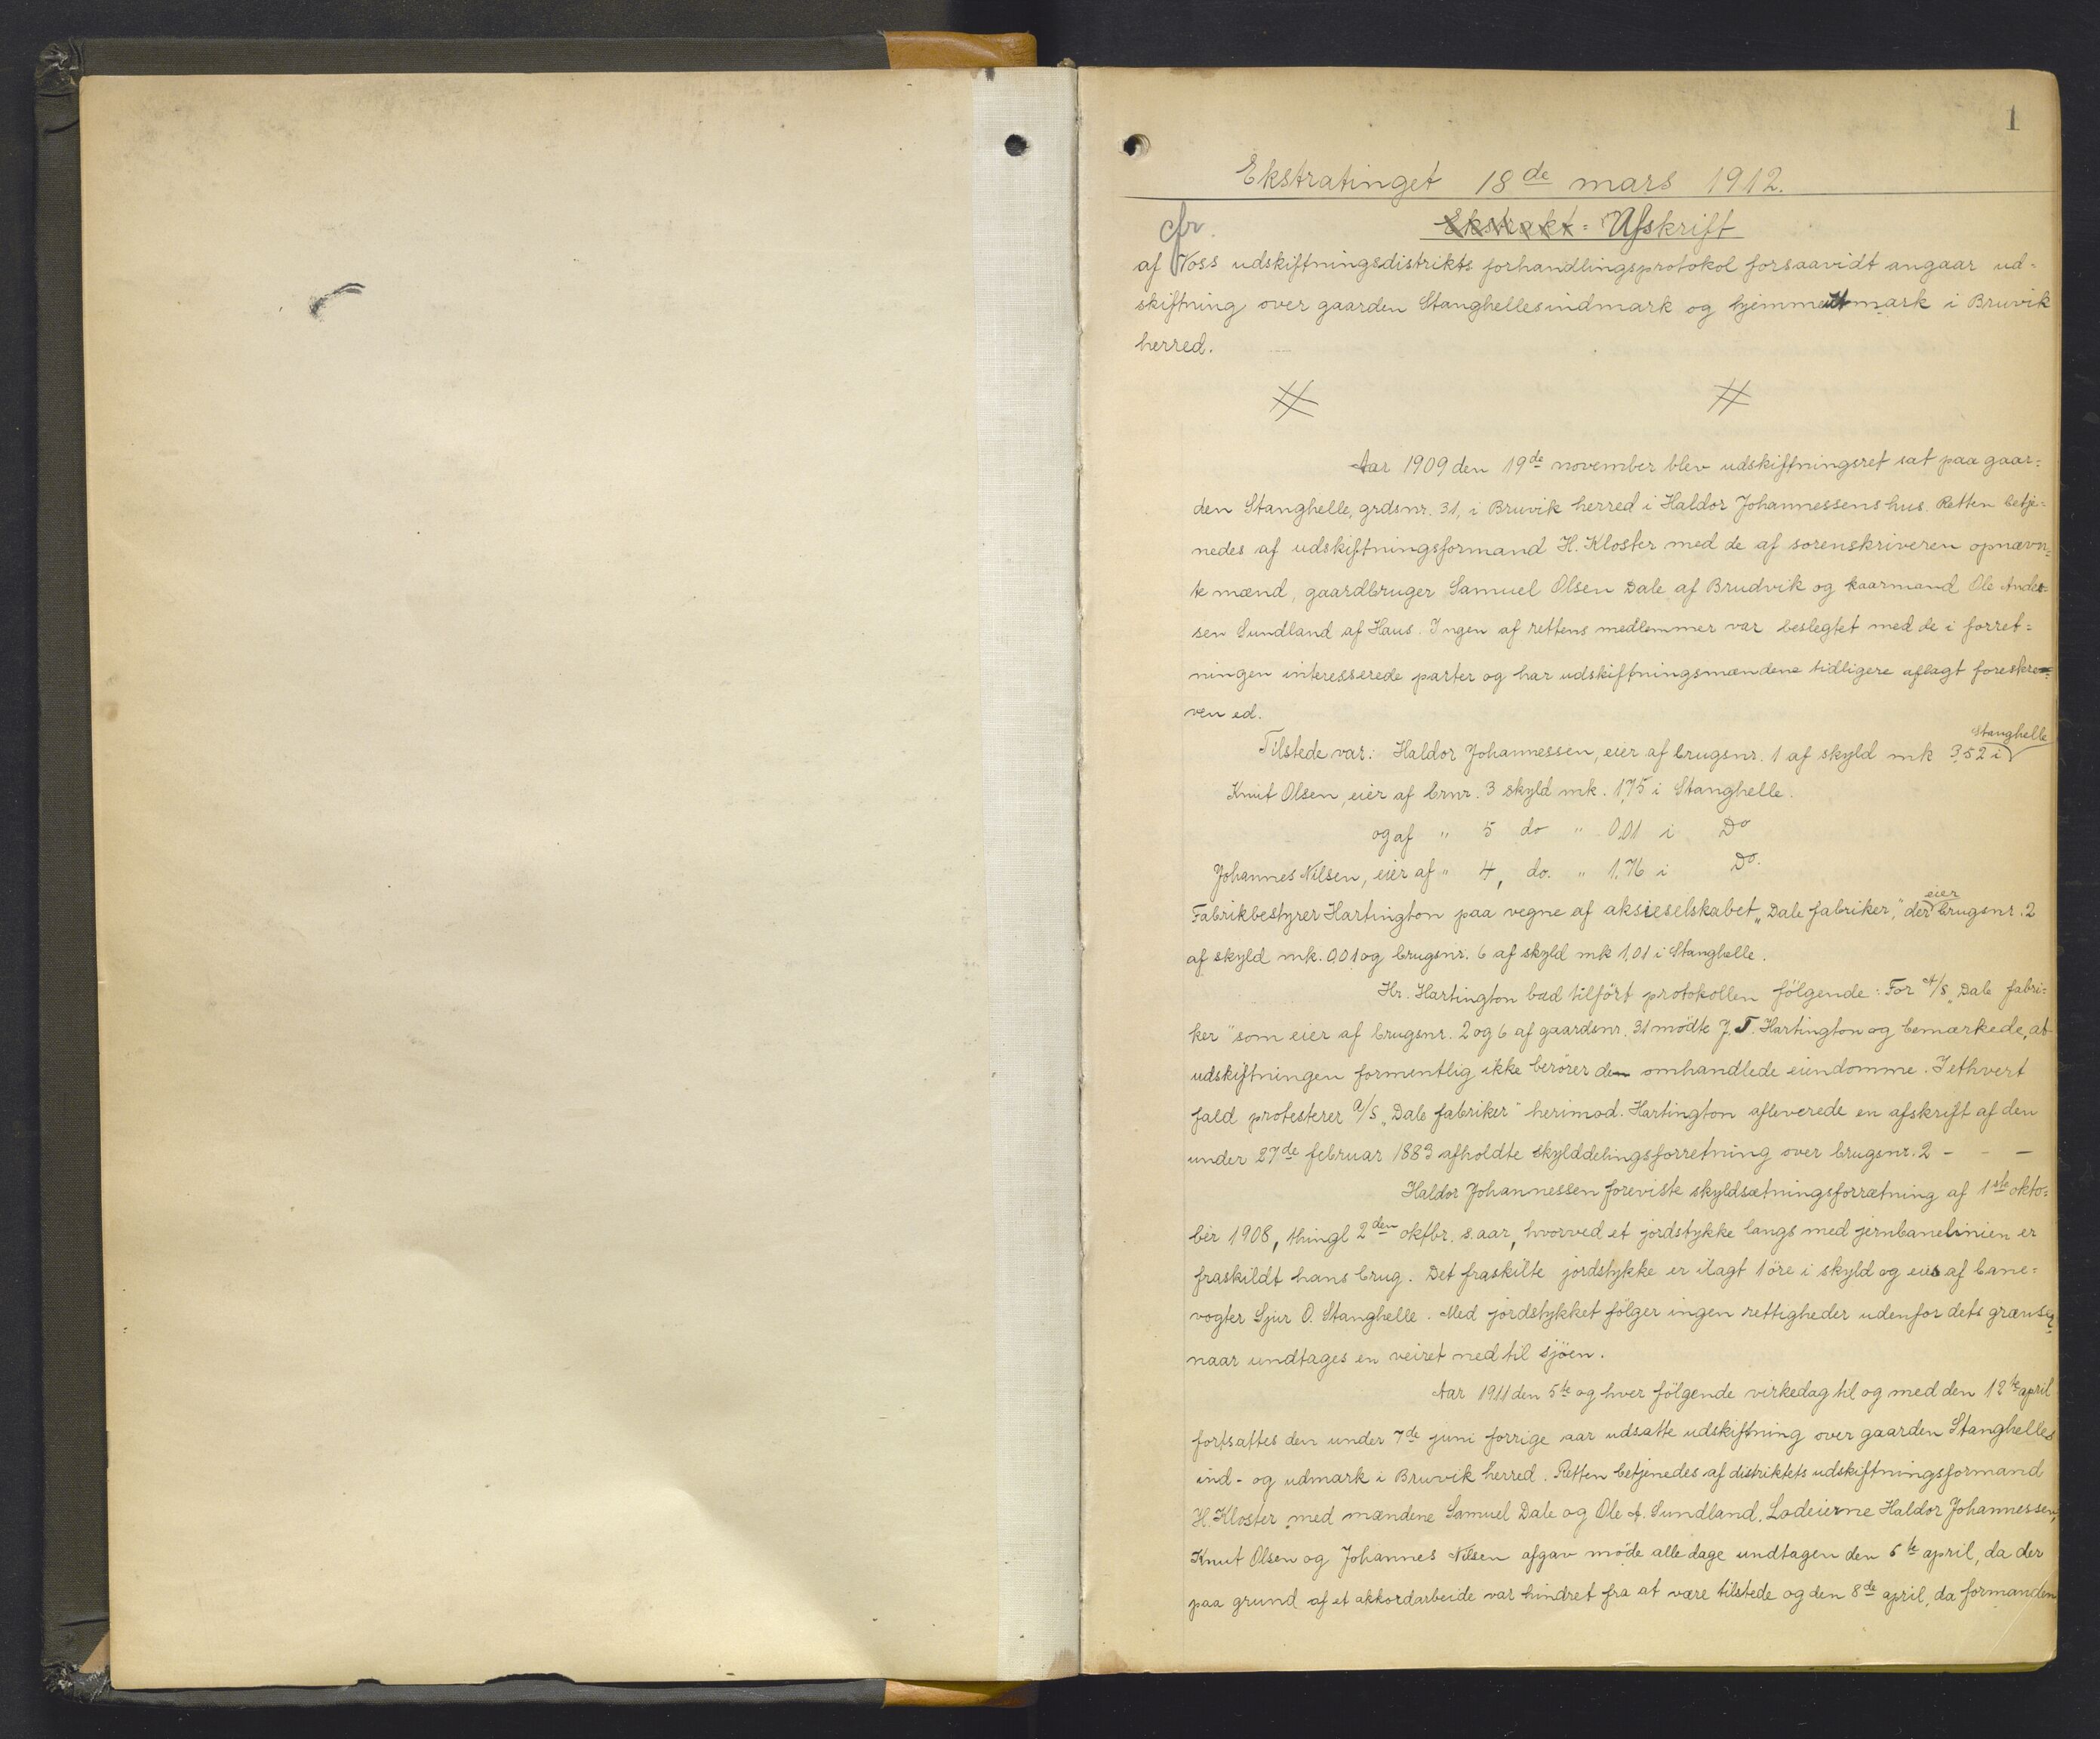 1
Ekstratinget 18de mars 1912.
cfr.
Ekstrakt = Afskrift
af Voss udskiftningsdistrikts forhandlingsprotokol forsaavidt angaar ud=
skiftning over gaarden Stanghellesindmark og hjemmeutmark i Bruvik
herred.
Aar 1909 den 19de november blev udskiftningsret sat paa gaar=
den Stanghelle, grdsnr. 31, i Bruvik herred i Haldor Johannessens hus. Retten betje=
nedes af udskiftningsformand H. Kloster med de af sorenskriveren opnævn=
te mænd, gaardbruger Samuel Olsen Dale af Brudvik og kaarmand Ole Ander=
sen Sundland af Haus. Ingen af rettens medlemmer var beslegtet med de i forret=
ningen interesserede parter og har udskiftningsmændene tidligere aflagt foreskre=
ven ed.
Tilstede var: Haldor Johannessen, eier af brugsnr. 1 af skyld mk 3,52 i Stanghelle
Knut Olsen, eier af brnr. 3 skyld mk. 1,75 i Stanghelle.
og af " 5 do " 0,01 i Do
Johannes Nilsen, eier af " 4, do. " 1.76 i Do.
Fabrikbestyrer Hartington paa vegne af aksieselskabet „Dale fabriker," der eier brugsnr. 2
af skyld mk. 0,01 og brugsnr. 6 af skyld mk 1,01 i Stanghelle.
Hr. Hartington bad tilført protokollen følgende: For A/S „Dale fabri=
ker" som eier af brugsnr. 2 og 6 af gaardsnr. 31 mødte J. T. Hartington og bemærkede, at
udskiftningen formentlig ikke berører den omhandlede eiendomme. I ethvert
fald protesterer A/S „Dale fabriker" herimod. Hartington afleverede en afskrift af den
under 27de februar 1883 afholdte skylddelingsforretning over brugsnr. 2 - - -
Haldor Johannessen foreviste skyldsætningsforrætning af 1ste okto=
ber 1908, thingl 2den oktbr. s. aar, hvorved et jordstykke langs med jernbanelinien er
fraskildt hans brug. Det fraskilte jordstykke er ilagt 1 öre i skyld og eies af bane=
vogter Sjur O. Stanghelle. Med jordstykket følger ingen rettigheder udenfor dets grænser,
naar undtages en veiret ned til sjøen.
Aar 1911 den 5te og hver følgende virkedag til og med den 12te april
fortsattes den under 7de juni forrige aar udsatte udskiftning over gaarden Stanghelles
ind- og udmark i Bruvik herred. Retten betjenedes af distriktets udskiftningsformand
H. Kloster med mændene Samuel Dale og Ole A. Sundland. Lodeierne Haldor Johannessen,
Knut Olsen og Johannes Nilsen afgav møde alle dage undtagen den 6te april, da der
paa grund af et akkordarbeide var hindret fra at være tilstede og den 8de april, da formanden